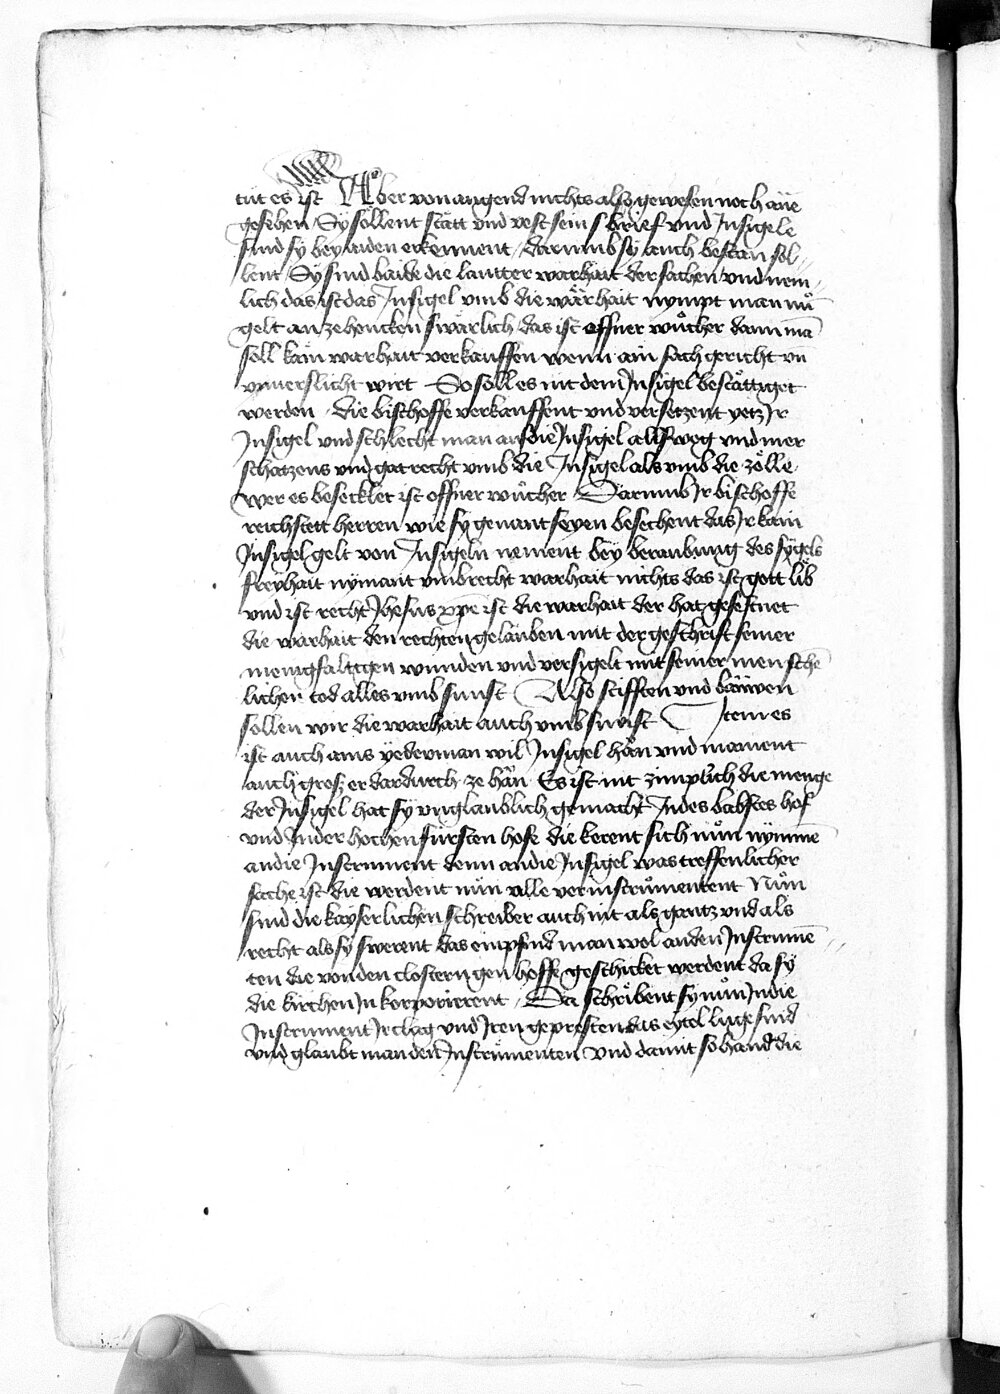 tut es ist Aber von augend nichts also gewesen noch aüe
gesehen / Sy söllent stätt vnd vest sein s brief vnd Insigele
sind sy bey aiden erkennent / darumb sy auch bestan sol„
lent / Sy sind baide die lautter warhait der sachen vnd nem„
lich das ist das Insigel vmb die wärhait nympt man nů
gelt an ze hencken swärlich das ist offner wůcher dann mā
soll kain warhait verkauffen wenn ain sach gericht vn̄
vnuerslicht wirt So soll es mit dem Insigel bestättiget
werden / die bischoffe verkauffent vnd versetzent yetz Ir
Insigel vnd schlecht man auf die Insigel allweg vnd mer
schatzens vnd gat recht vmb die Insigel als vmb die zölle
wer es besecklet ist offner wůcher / Darumb Ir bischoffe
reichstett herren wie sy genant seyen besechent das Ir kain
Insigel gelt von Insigeln nement bey beraubung des sygels
freyhait nymant vmbrecht warhait nichts das ist gott lib
vnd ist recht Jhesus xp̄e ist die warhait der hat gefestnet
die warhait den rechten gelauben mit der geschrift seiner
menigfaltigen wunden vnd versigelt mit seiner menschē
lichen tod alles vmb sunst Also stifften vnd bawen
sollen wir die warhait auch vmb sunst Item es
ist auch ains yederman wil Insigel hän vnd mament
auch gröss er dardurch ze hän Es ist nit zimplich die menge
der Insigel hat sy vnglaublich gemacht In des babstes hof
vnd In der hochen fürsten hofe die kerent sich nůn nymmē
an die Instrument denn an die Insigel was treffenlicher
sache ist die werdent nůn alle verinstrůmentent Nůn
sind die kayserlichen schreiber auch nit als gantz vnd als
recht als sy swerent das empfind man wol an den Instrumē„
ten die von den clostern gen hoffe geschicket werdent da sy
die kirchen In korporierent / Da schribent sy nůn In die
Instrument Ir clag vnd Iren gepresten das eytel luge sind
vnd glaubt man den Instrůmenten vnd damit so hand die